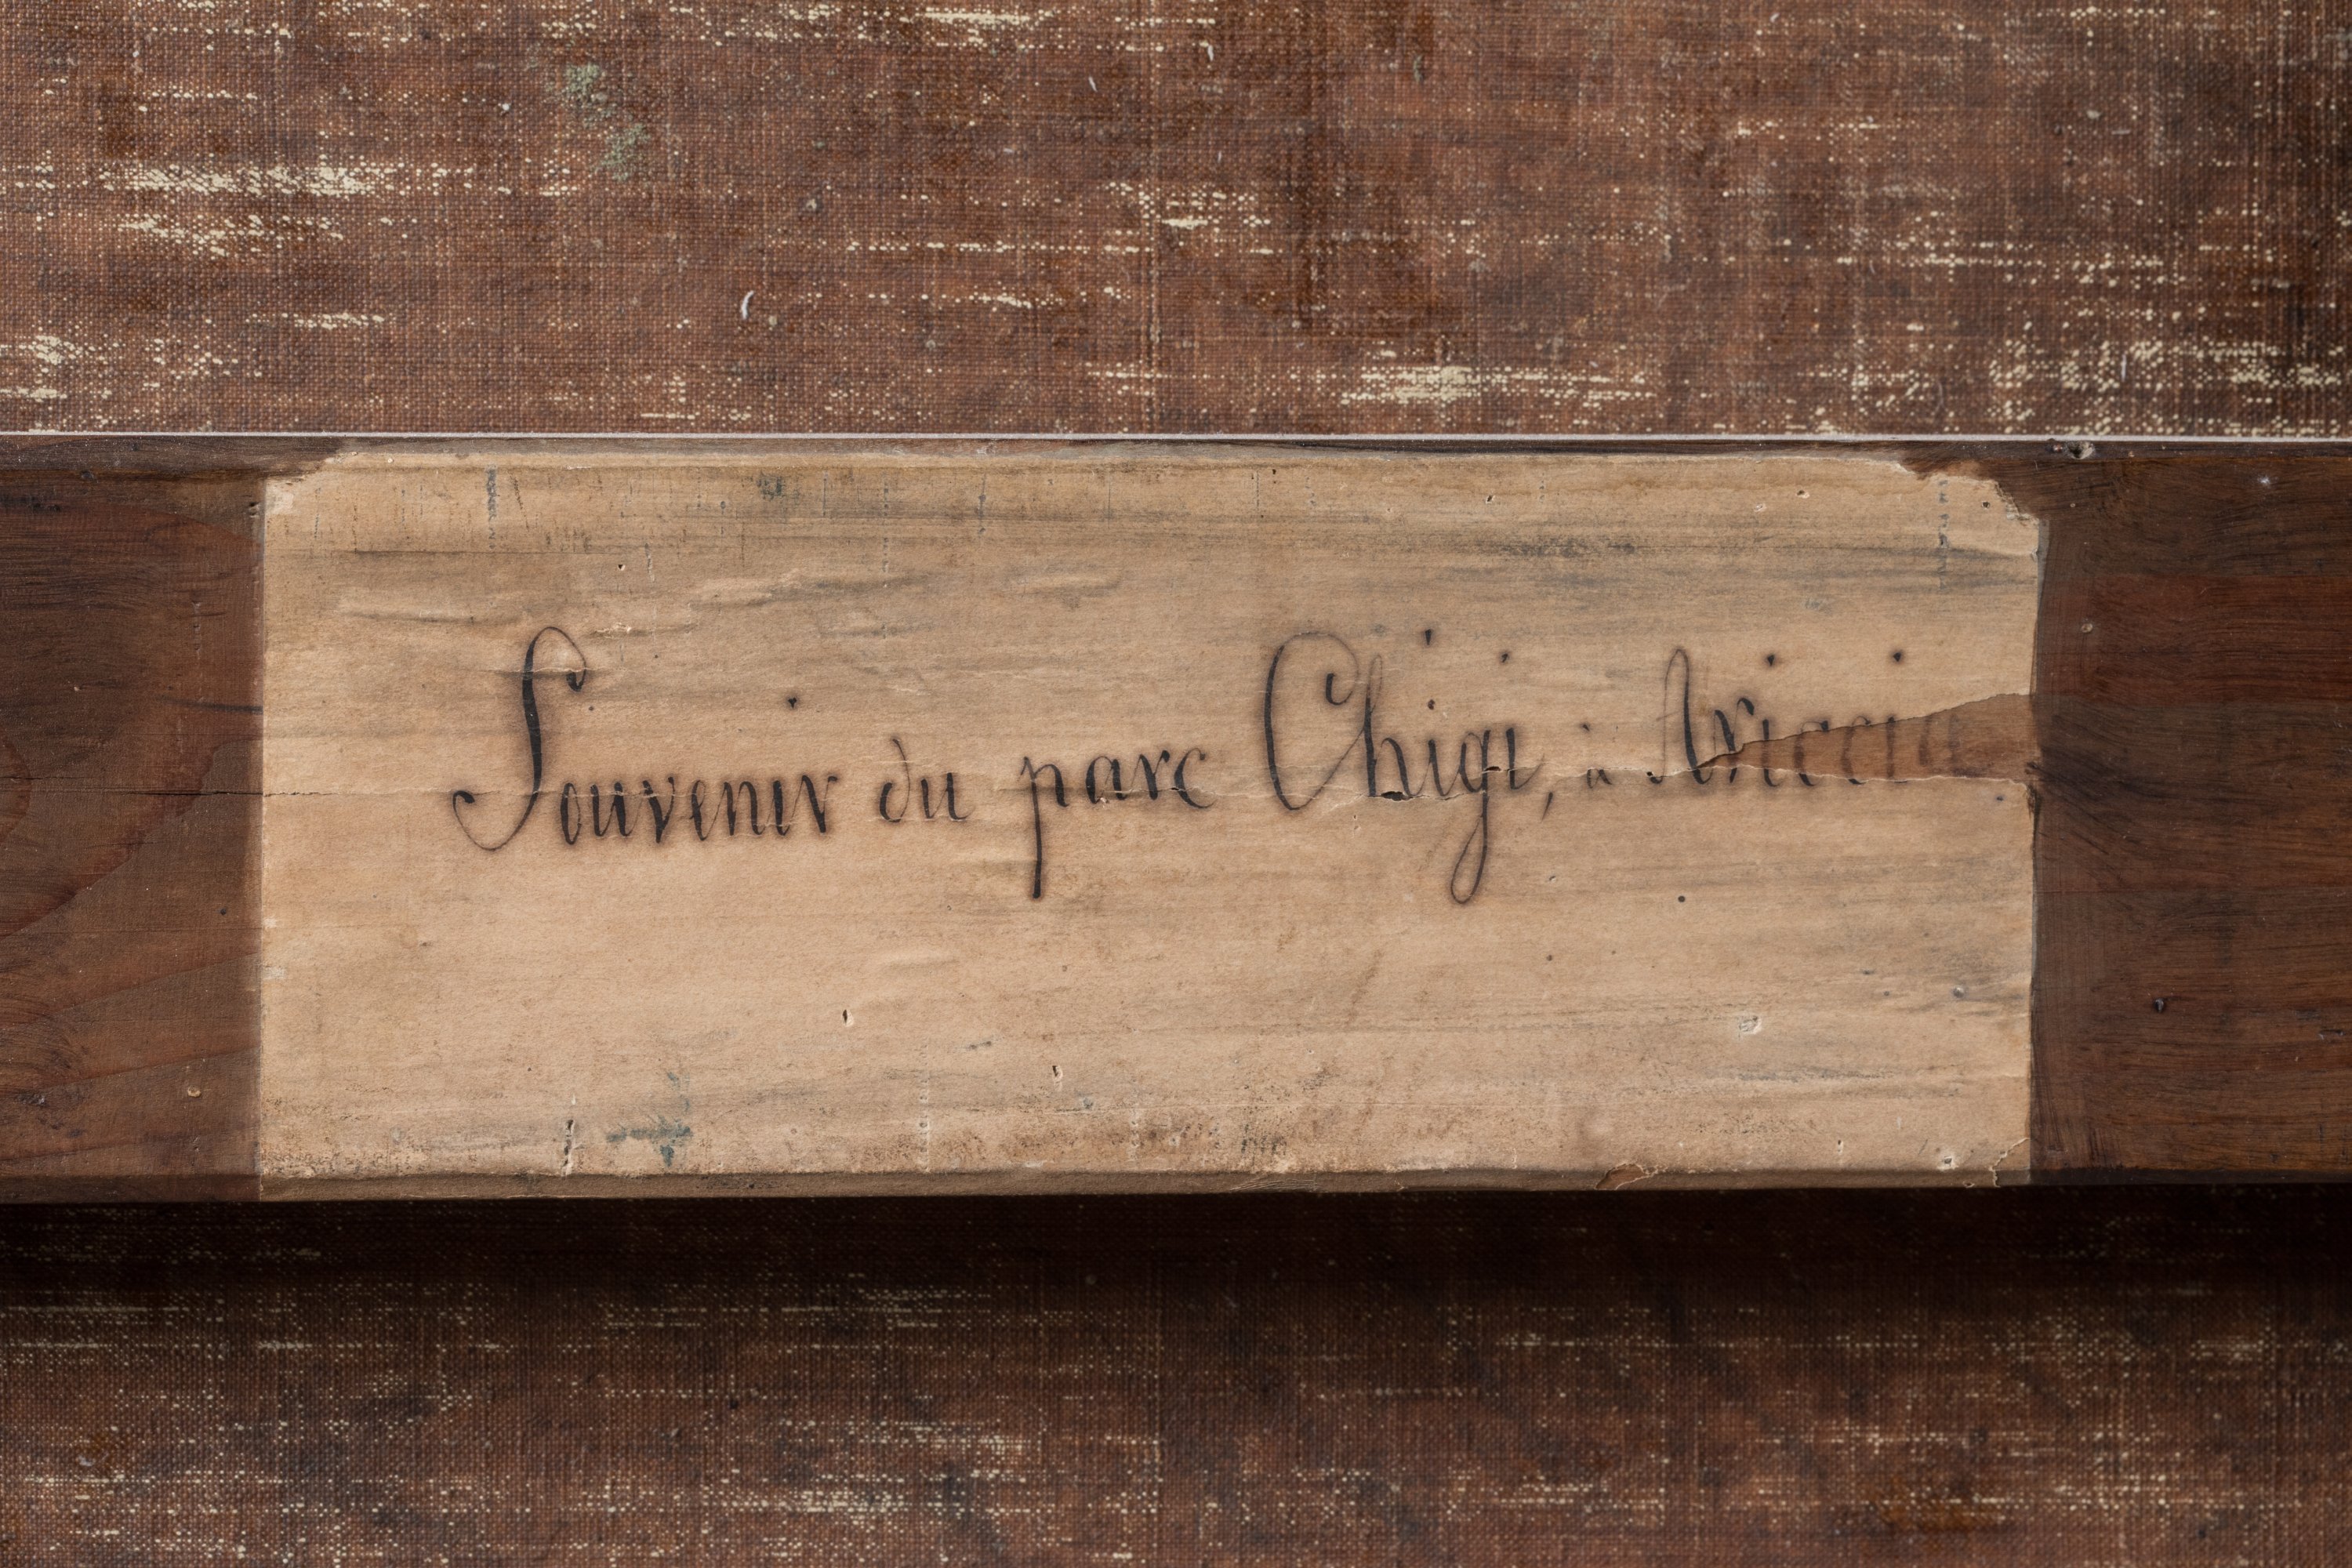 Souvenir du parc Chigi, à Ariccia